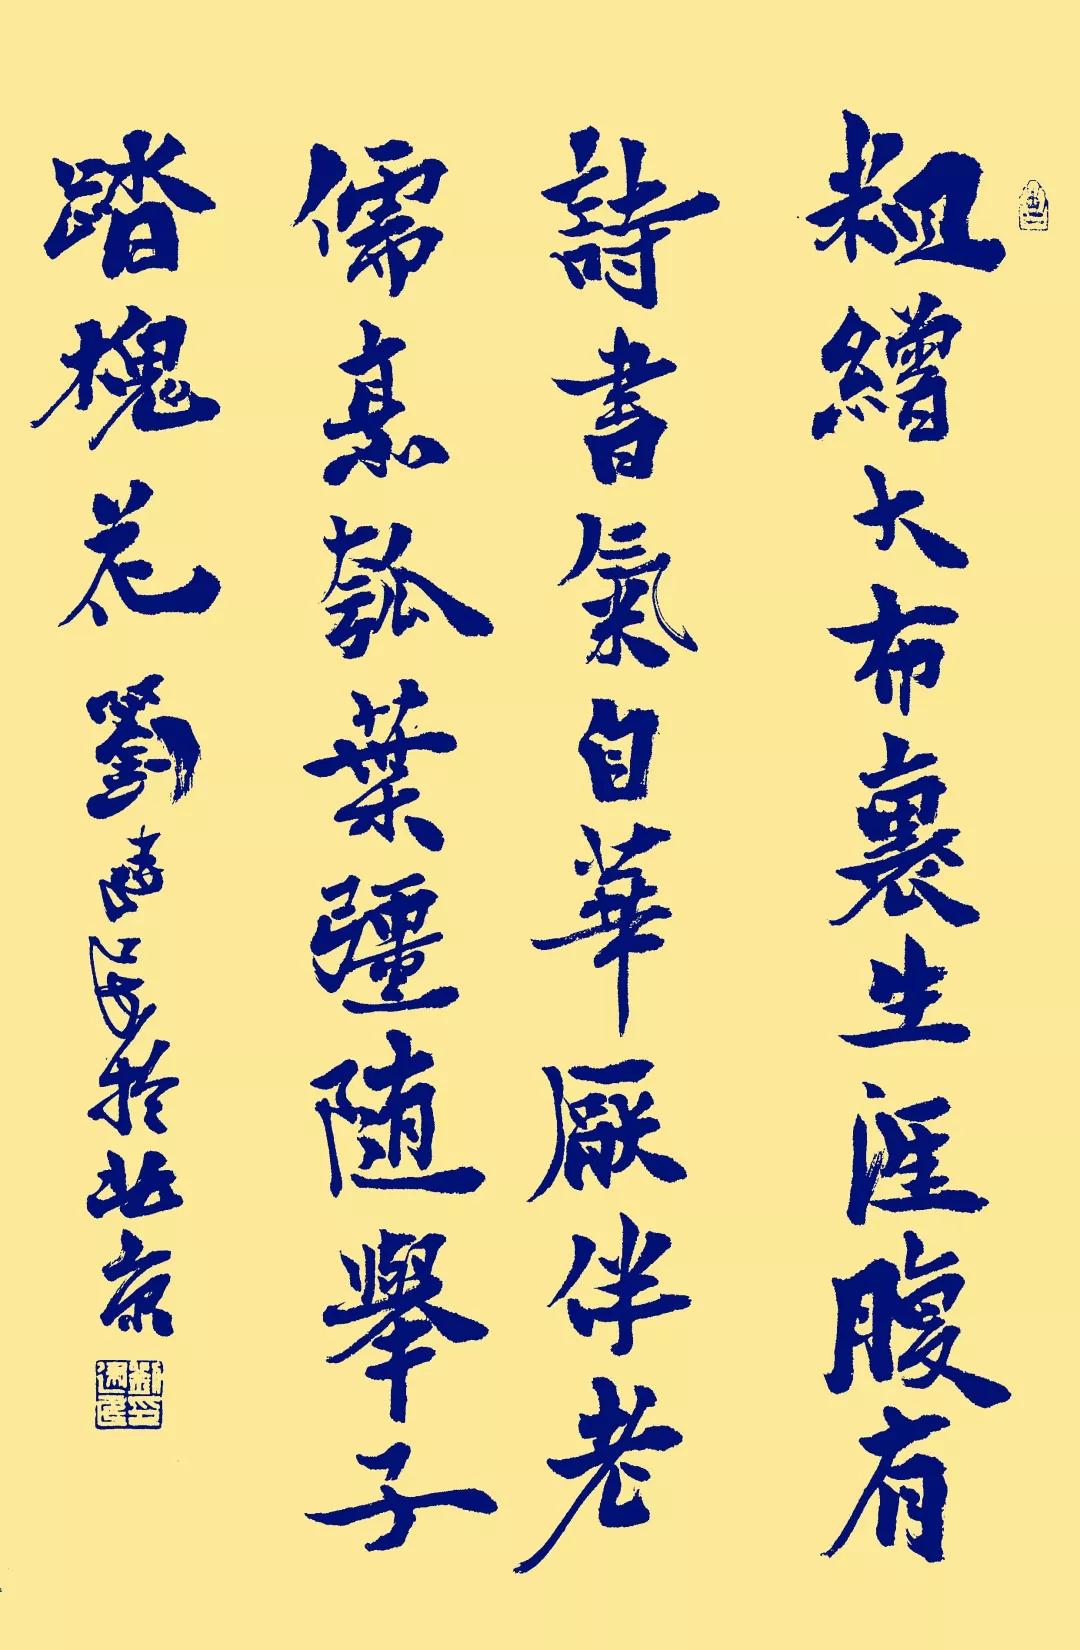 粗繒大布裹生涯腹有
詩書氣自華厭伴老
儒烹瓠葉彊随舉子
踏槐花 劉 於北京